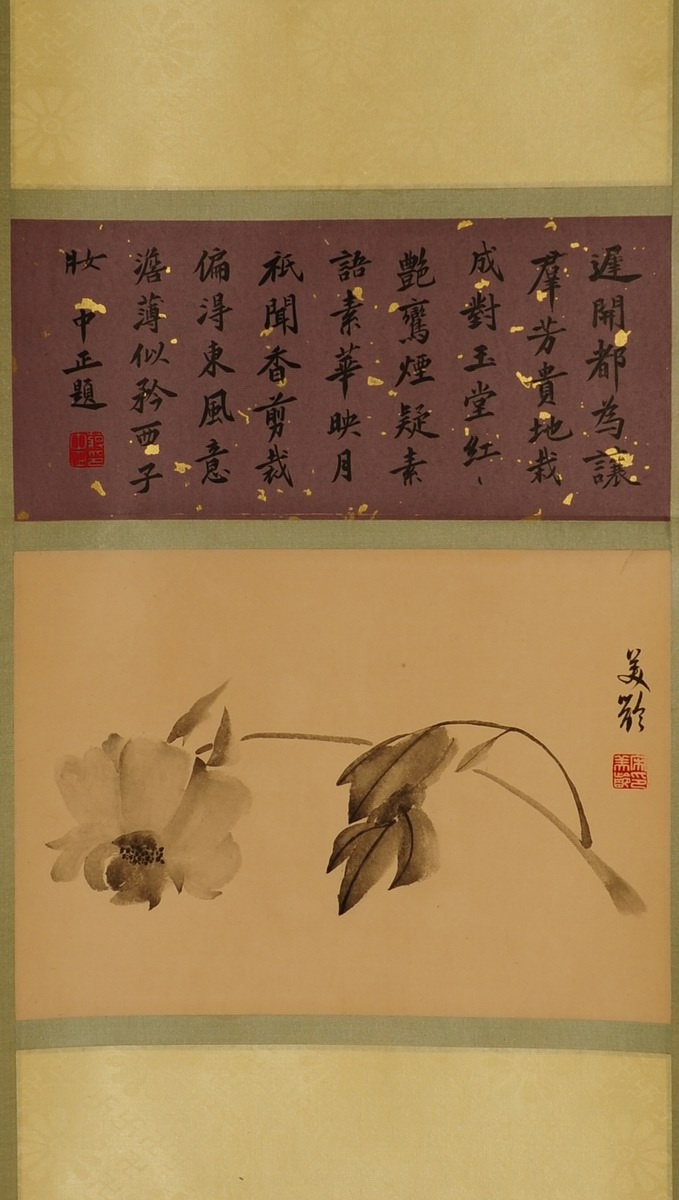 遲開都為讓
羣芳貴地栽
成對玉堂紅、
艷鸞煙疑素
語素華映月
祇聞香剪裁
偏得東風意
澹薄似矜西子
妝 中正題
美齡